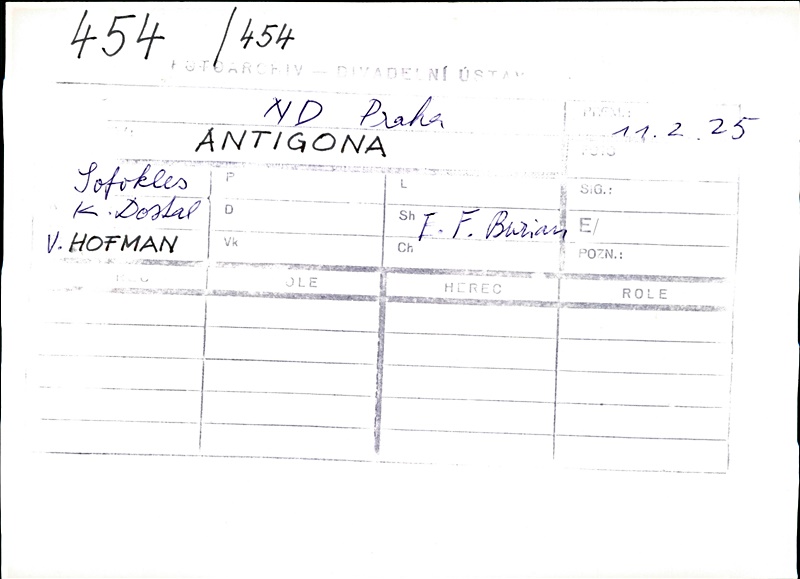 454 /454
FOTOARCHIV — DIVADELNÍ ÚSTAV
ND Praha
11.2.25
ANTIGONA
FOTO
Sofokles P L SIG.:
K. Dostal D Sh E. F. Burian E/
V. HOFMAN Vk Ch POZN.:
ROLE HEREC ROLE